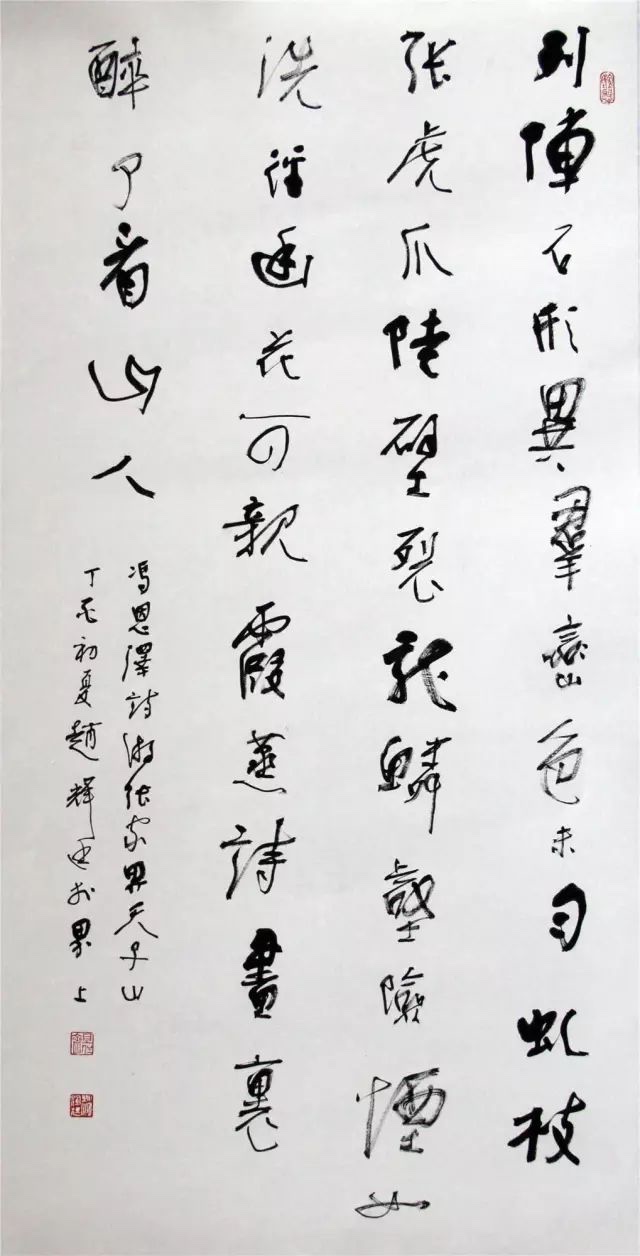 列陣石形異羣巒色未匀虬枝
张虎爪陡壁裂龍鱗壑險煙如
洗徑幽花可親霞蒸詩畫裏
醉了看山人
冯恩澤詩游张家界天子山
丁亥初夏趙輝於界上